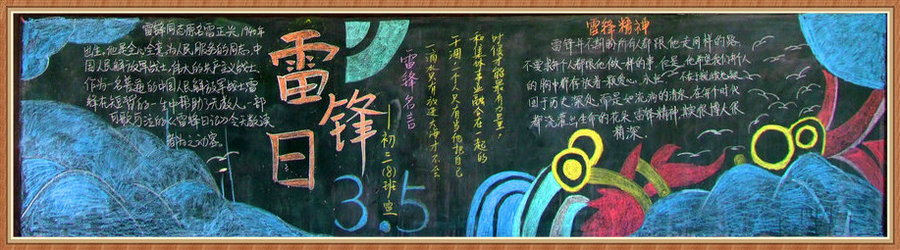 雷锋同志原名雷正兴,1940年
出生,他是全心全意为人民服务的同志,中
国人民解放军战士,伟大的共产主义战士
作为一名普通的中国人民解放军战士雷
锋在短暂的一生中帮助了无数人一部
可歌可泣的《雷锋日记》令今天读
者为之动容.
雷锋日
3.5
初二(8)班宣
雷锋名言
一滴水只有放进大海才不会
干涸,一个人只有当他把自己
和集体事业融合在一起的
时候才能最有力量!
雷锋精神
雷锋并不期盼所有人都跟他走同样的路,
不要求每个人都跟他做一样的事,但是,他希望我们每个人
的胸中都存放着一颗爱心,永
困于历史深处,而是如流淌的清水,在每个时代
都浇灌出生命的花朵.雷锋精神,其实很博大很
精深.